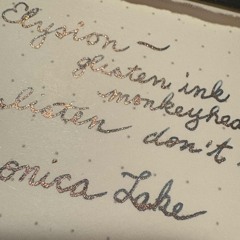 Elysion ~
glisten ink
monkeyhea
listen don't
onica Lake